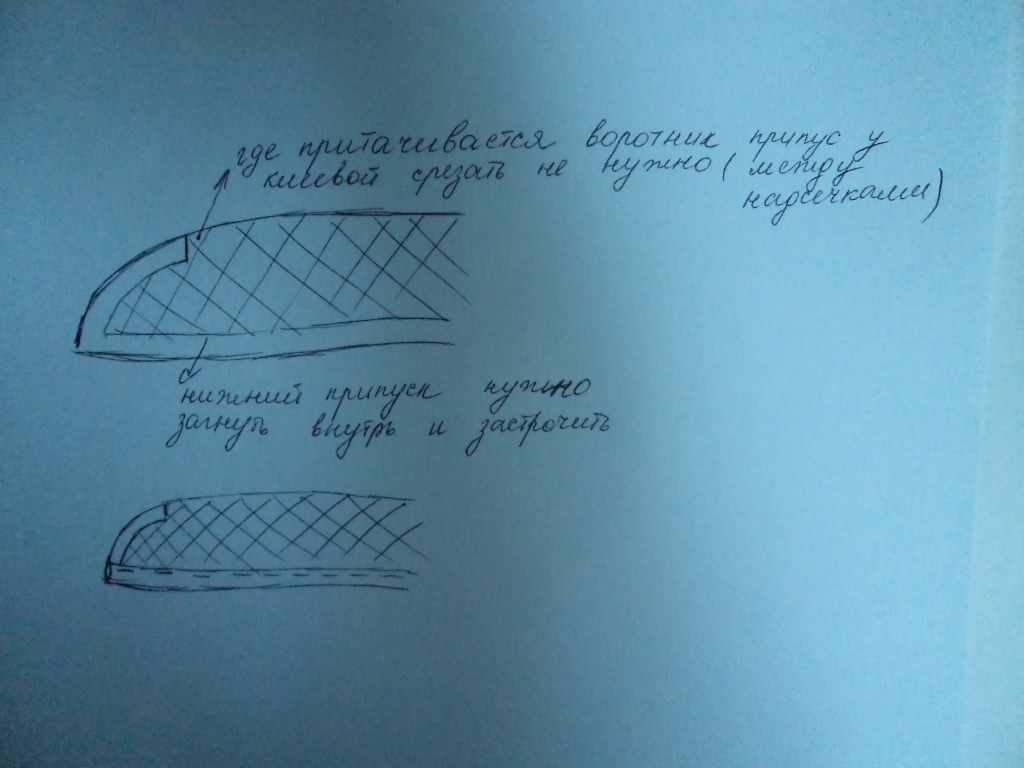 где притачивается воротник припус у
клеевой срезать не нужно (между
надсечками)
нижний припуск нужно
загнуть внутрь и застрочить